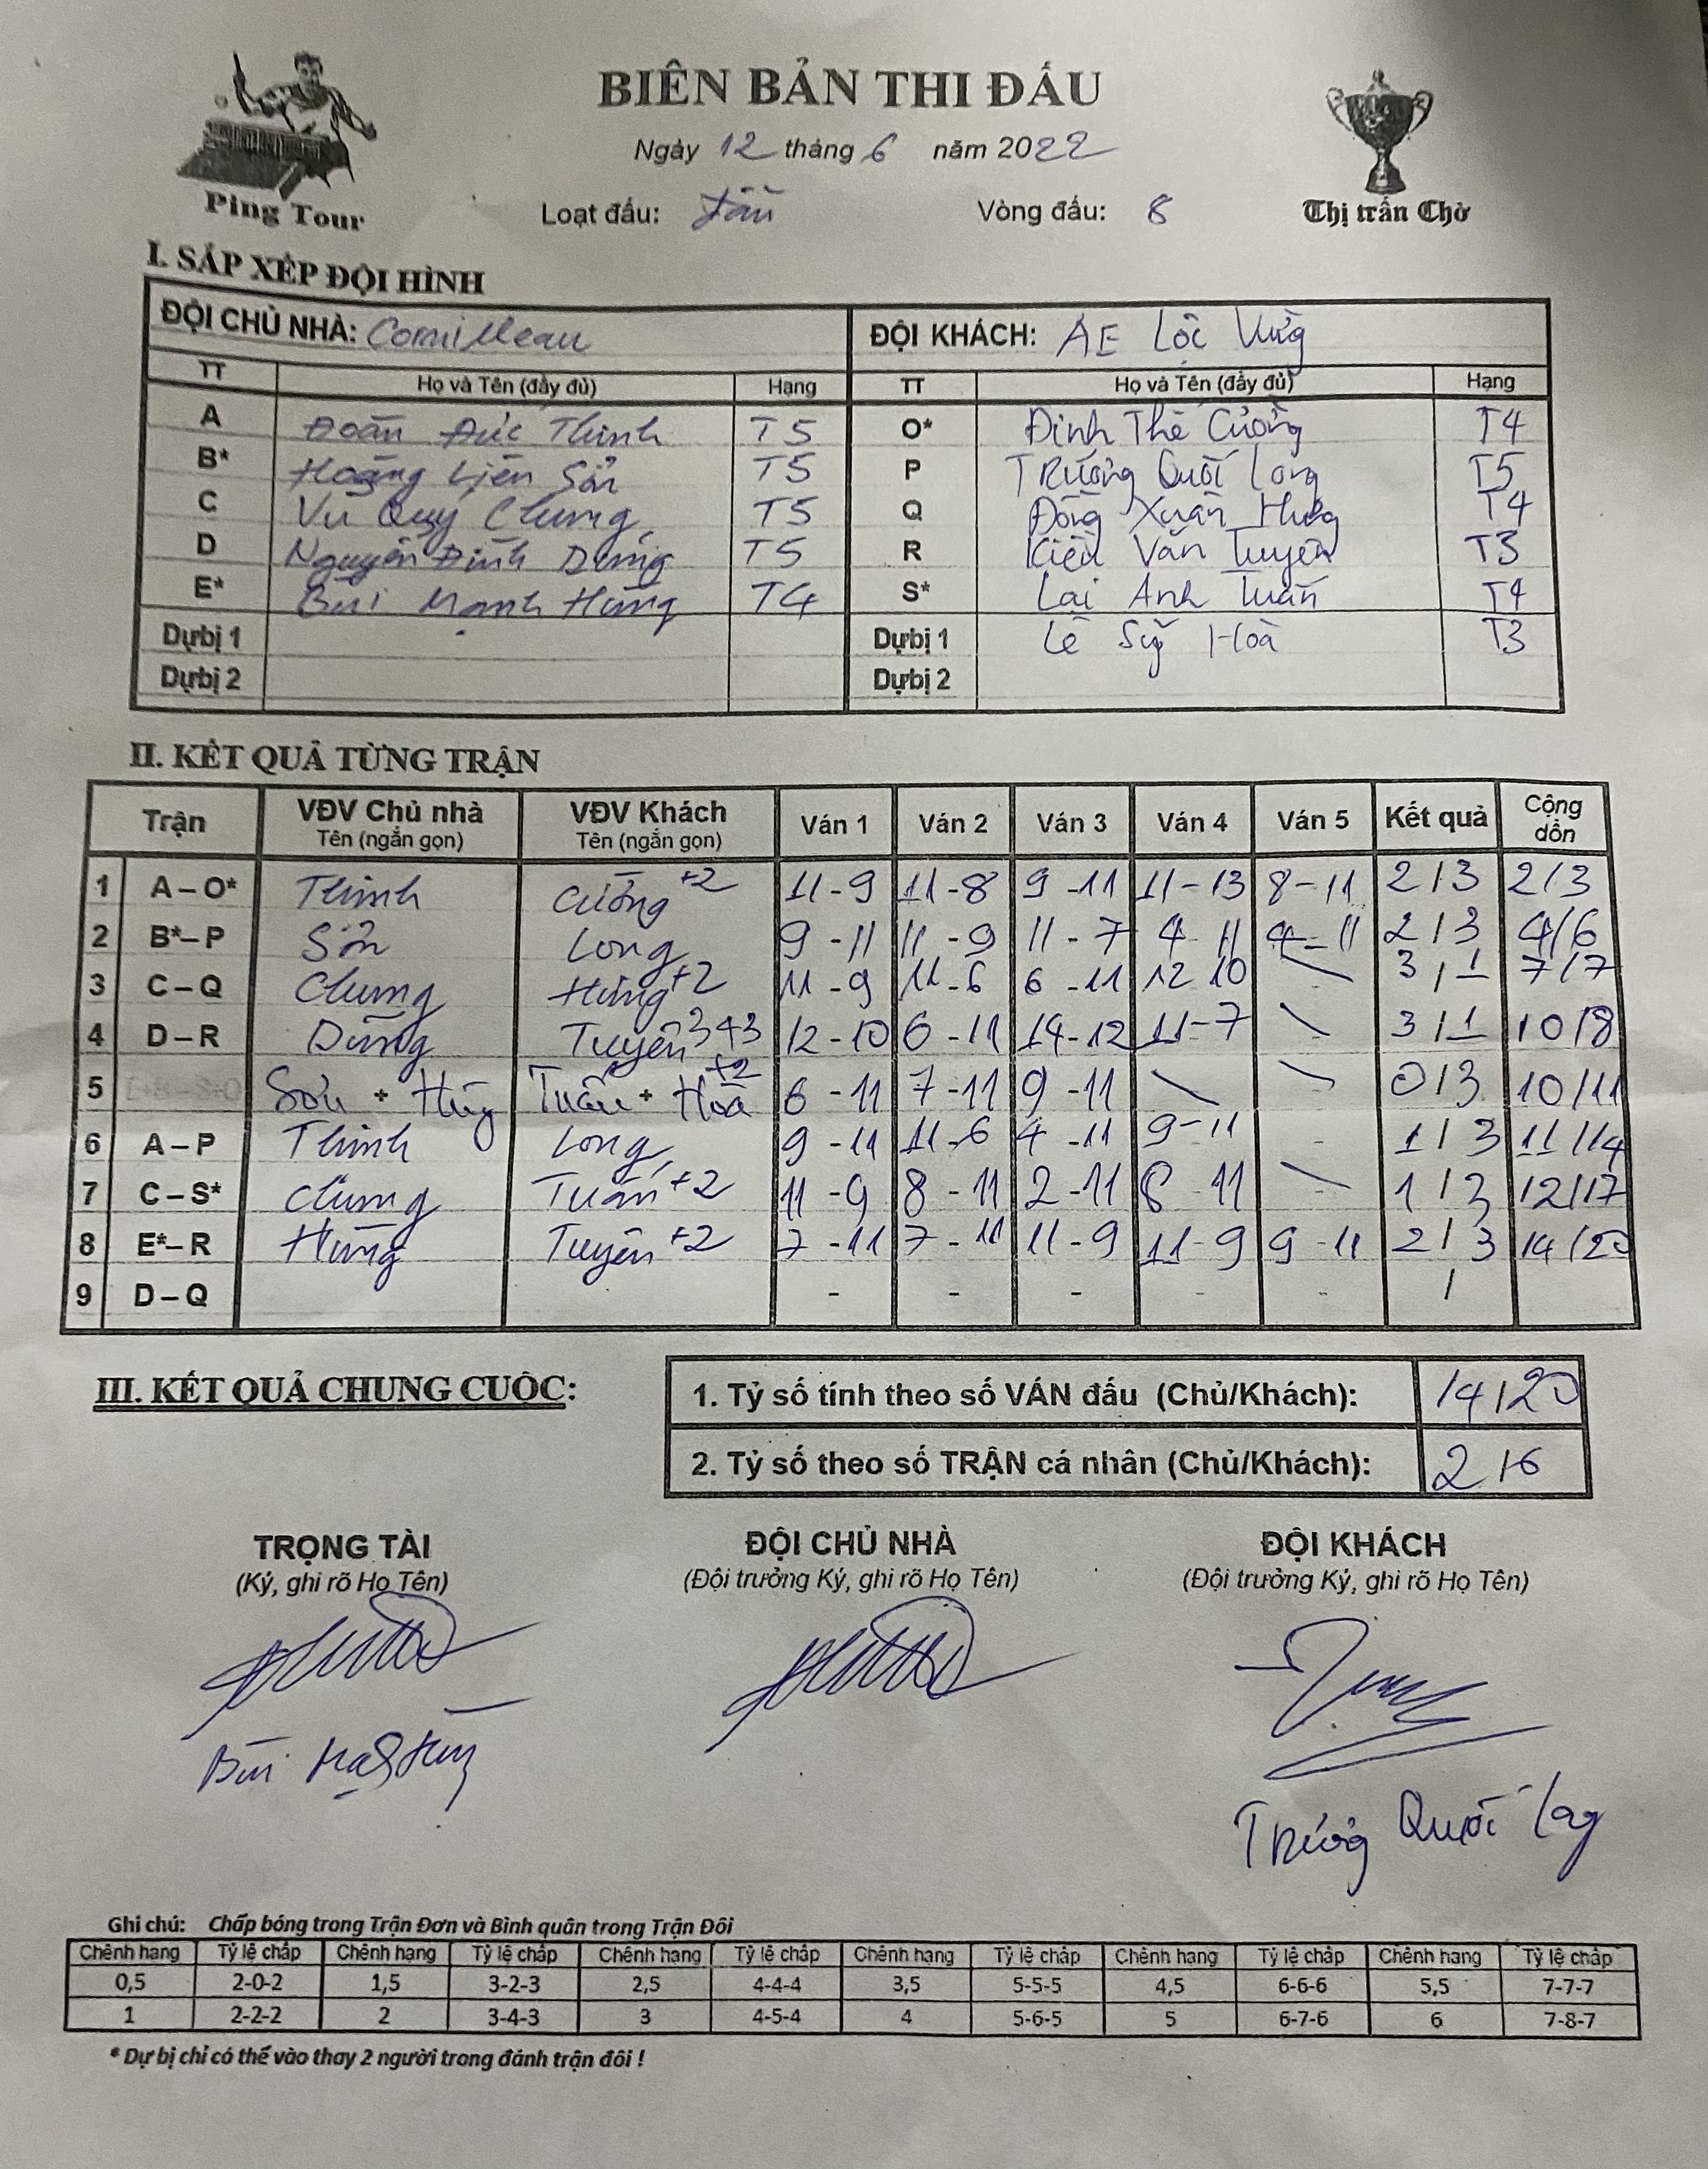 BIÊN BẢN THI ĐẤU
Ngày 12 tháng 6 năm 2022
Ping Tour
Loạt đấu:
Vòng đấu: 8
Thị trấn Chờ
I. SẮP XẾP ĐỘI HÌNH
ĐỘI CHỦ NHÀ: Cornilleau ĐỘI KHÁCH: AE Lộc Vừng
TT Họ và Tên (đầy đủ) Hạng TT Họ và Tên (đầy đủ) Hạng
A Đoàn Đức Thịnh T5 O* Đinh Thế Cường T4
B* Hoàng Liên Sơn T5 P Trương Quốc Long T5
C Vũ Quý Chung T5 Q Đồng Xuân Hưng T4
D Nguyễn Đình Dũng T5 R Kiều Văn Tuyên T3
E* Bùi Mạnh Hùng T4 S* Lại Anh Tuấn T4
Dự bị 1 Dự bị 1 Lê Sỹ Hoà T3
Dự bị 2 Dự bị 2
II. KẾT QUẢ TỪNG TRẬN
Trận VĐV Chủ nhà Tên (ngắn gọn) VĐV Khách Tên (ngắn gọn) Ván 1 Ván 2 Ván 3 Ván 4 Ván 5 Kết quả Cộng dồn
1 A – O* Thịnh Cường +2 11 - 9 11 - 8 9 - 11 11 - 13 8 - 11 2 / 3 2/3
2 B* – P Sơn Long 9 - 11 11 - 9 11 - 7 4 - 11 4 - 11 2 / 3 4/6
3 C – Q Chung Hưng +2 11 - 9 11 - 6 6 - 11 12 10 3 / 1 7/7
4 D – R Dũng Tuyên 343 12 - 10 6 - 11 14 - 12 11 - 7 3 / 1 10/8
5 Sơn + Hùng Tuấn + Hoà +2 6 - 11 7 - 11 9 - 11 0 / 3 10/11
6 A – P Thịnh Long 9 - 11 11 - 6 4 - 11 9 - 11 - 1 / 3 11/14
7 C – S* Chung Tuấn +2 11 - 9 8 - 11 2 - 11 8 - 11 1 / 3 12/17
8 E* – R Hùng Tuyên +2 7 - 11 7 - 11 11 - 9 11 - 9 9 - 11 2 / 3 14/20
9 D – Q - - - - - /
III. KẾT QUẢ CHUNG CUỘC:
1. Tỷ số tính theo số VÁN đấu (Chủ/Khách): 14/20
2. Tỷ số theo số TRẬN cá nhân (Chủ/Khách): 2/6
TRỌNG TÀI ĐỘI CHỦ NHÀ ĐỘI KHÁCH
(Ký, ghi rõ Họ Tên) (Đội trưởng Ký, ghi rõ Họ Tên) (Đội trưởng Ký, ghi rõ Họ Tên)
Bùi Mạnh Hùng
Trương Quốc Long
Ghi chú: Chấp bóng trong Trận Đơn và Bình quân trong Trận Đôi
Chênh hạng Tỷ lệ chấp Chênh hạng Tỷ lệ chấp Chênh hạng Tỷ lệ chấp Chênh hạng Tỷ lệ chấp Chênh hạng Tỷ lệ chấp Chênh hạng Tỷ lệ chấp
0,5 2-0-2 1,5 3-2-3 2,5 4-4-4 3,5 5-5-5 4,5 6-6-6 5,5 7-7-7
1 2-2-2 2 3-4-3 3 4-5-4 4 5-6-5 5 6-7-6 6 7-8-7
* Dự bị chỉ có thể vào thay 2 người trong đánh trận đôi !